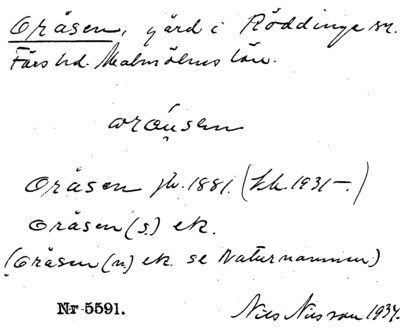 Oråsen, gård i Röddinge sn.
Färs hd. Malmöhus län.
oråsen jb. 1881. (kk. 1931–.)
oråsen (s.) ek.
(Oråsen (n.) ek. se Naturnamnen)
Nr 5591. Nils Nilsson 1934.